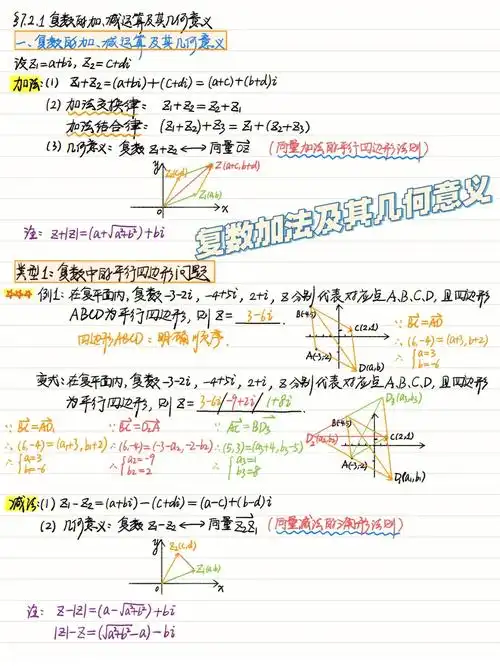 §7.2.1 复数的加、减运算及其几何意义
一、复数的加、减运算及其几何意义
设Z₁=a+bi, Z₂=c+di
加法:(1) Z₁+Z₂=(a+bi)+(c+di)=(a+c)+(b+d)i
(2) 加法交换律: Z₁+Z₂=Z₂+Z₁
加法结合律: (Z₁+Z₂)+Z₃=Z₁+(Z₂+Z₃)
(3) 几何意义: 复数 Z₁+Z₂ ⟷ 向量OZ (向量加法的平行四边形法则)
y
Z₂(c,d)
Z(a+c,b+d)
Z₁(a,b)
0
x
复数加法及其几何意义
注: Z+|Z|=(a+√a²+b²)+bi
类型1: 复数中的平行四边形问题
例1: 在复平面内, 复数-3-2i, -4+5i, 2+i, Z分别代表对应点A.B.C.D, 且四边形
ABCD为平行四边形, 则Z= 3-6i .
四边形ABCD: 明确顺序.
B(-4,5)
C(2,1)
A(-3,-2)
D(a,b)
∵ BC=AD
∴ (6,-4)=(a+3,b+2)
∴ {a=3
b=-6
变式: 在复平面内, 复数-3-2i, -4+5i, 2+i, Z分别代表对应点A.B.C.D, 且四边形
为平行四边形, 则Z= 3-6i/-9+2i/1+8i
∵ BC=AD₁ ∵ BC=D₂A ∵ AC=BD₃
∴ (6,-4)=(a₁+3,b₁+2) ∴ (6,-4)=(-3-a₂,-2-b₂) ∴ (5,3)=(a₃+4,b₃-5)
∴ {a=3 ∴ {a₂=-9 ∴ {a₃=1
b=-6 b₂=2 b₃=8
D₃(a₃,b₃)
D₂(a₂,b₂)
C(2,1)
A(-3,-2)
D₁(a₁,b₁)
减法:(1) Z₁-Z₂=(a+bi)-(c+di)=(a-c)+(b-d)i
(2) 几何意义: 复数 Z₁-Z₂ ⟷ 向量Z₂Z₁ (向量减法的三角形法则)
y
Z₂(c,d)
Z₁(a,b)
0
x
注: Z-|Z|=(a-√a²+b²)+bi
|Z|-Z=(√a²+b²-a)-bi